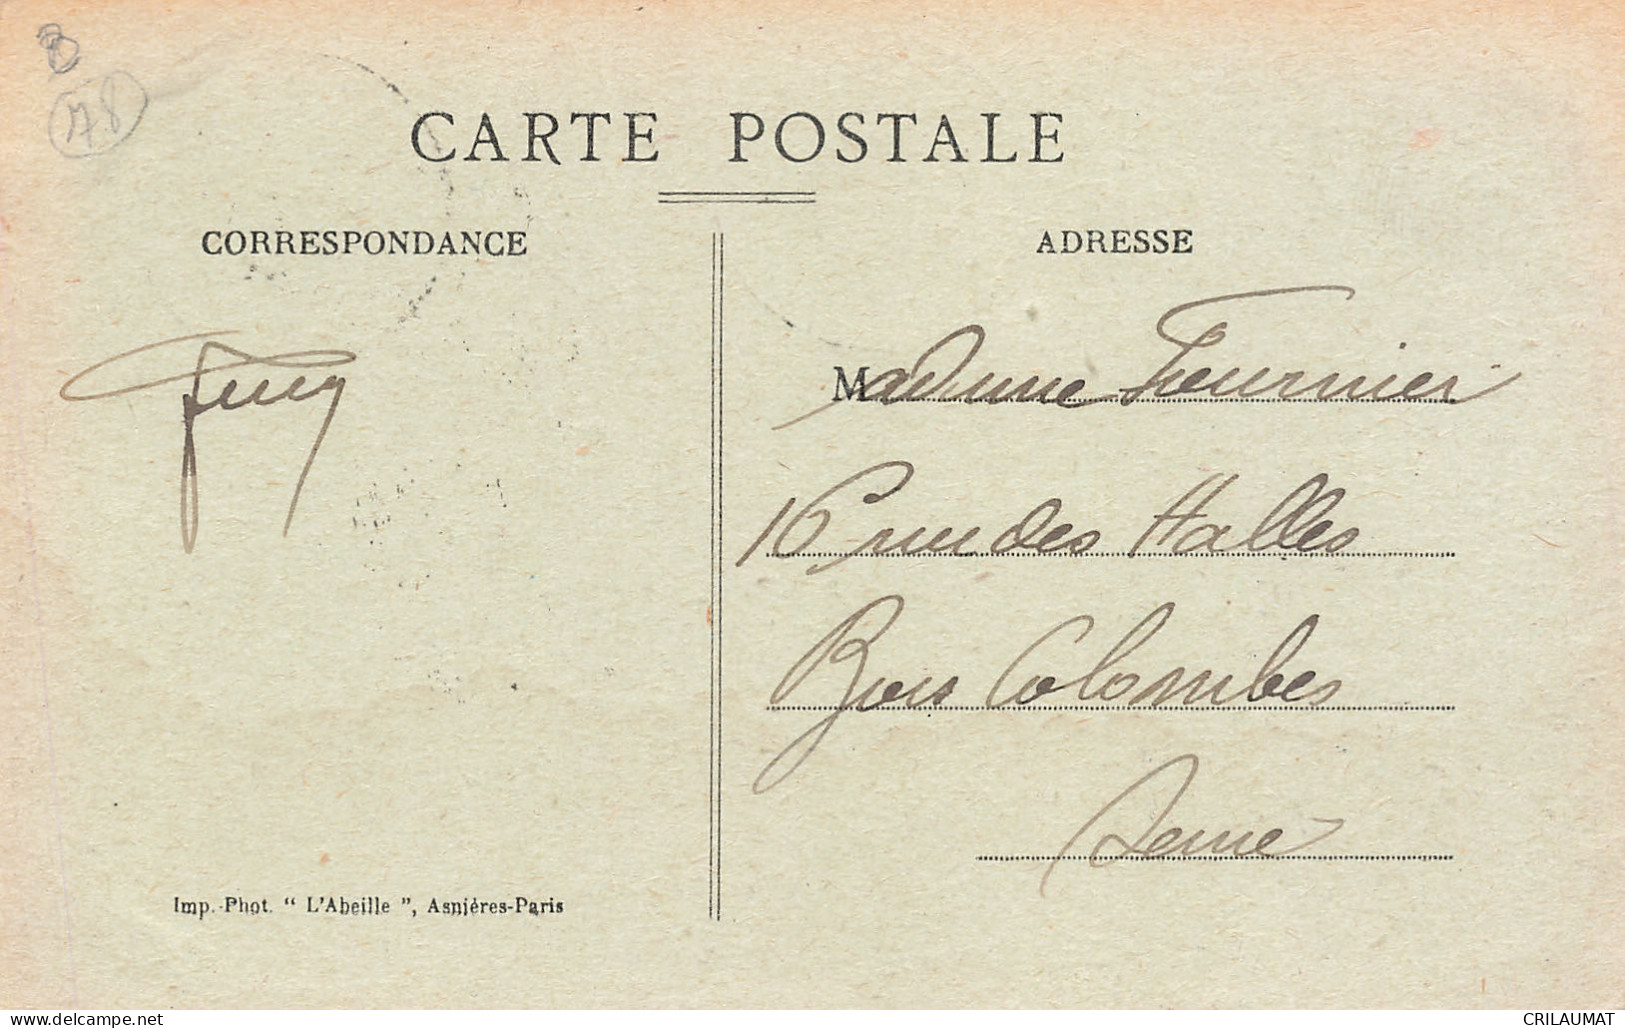 8
78
CARTE POSTALE
CORRESPONDANCE
ADRESSE
Madame Fournier
16 rue des Halles
Bois Colombes
Seine
Imp.-Phot. “ L'Abeille ”, Asnières-Paris
www.delcampe.net
CRILAUMAT